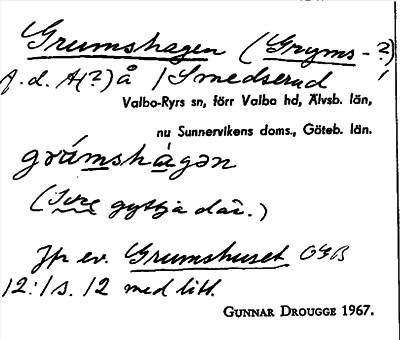 Grumshagen (Gryms-?)
f.d. A(?)å / Smedserud !
Valbo-Ryrs sn, förr Valbo hd, Älvsb. län,
nu Sunnervikens doms., Göteb. län.
grámshàgən
(Ivre gyttja där.)
Jfr ev. Grumshuset OGB
12:1 s. 12 med litt.
GUNNAR DROUGGE 1967.